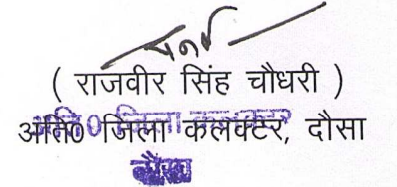 ( राजवीर सिंह चौधरी )
अति0 जिला कलक्टर, दौसा
दौसा